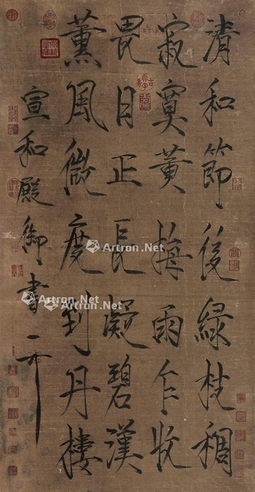 清和節後綠枝稠
寂寞黃梅雨乍收
畏日正長凝碧漢
薰風微度到丹樓
宣和殿御書
Artron.Net
Artron.Net
Artron.Net
Artron.Net